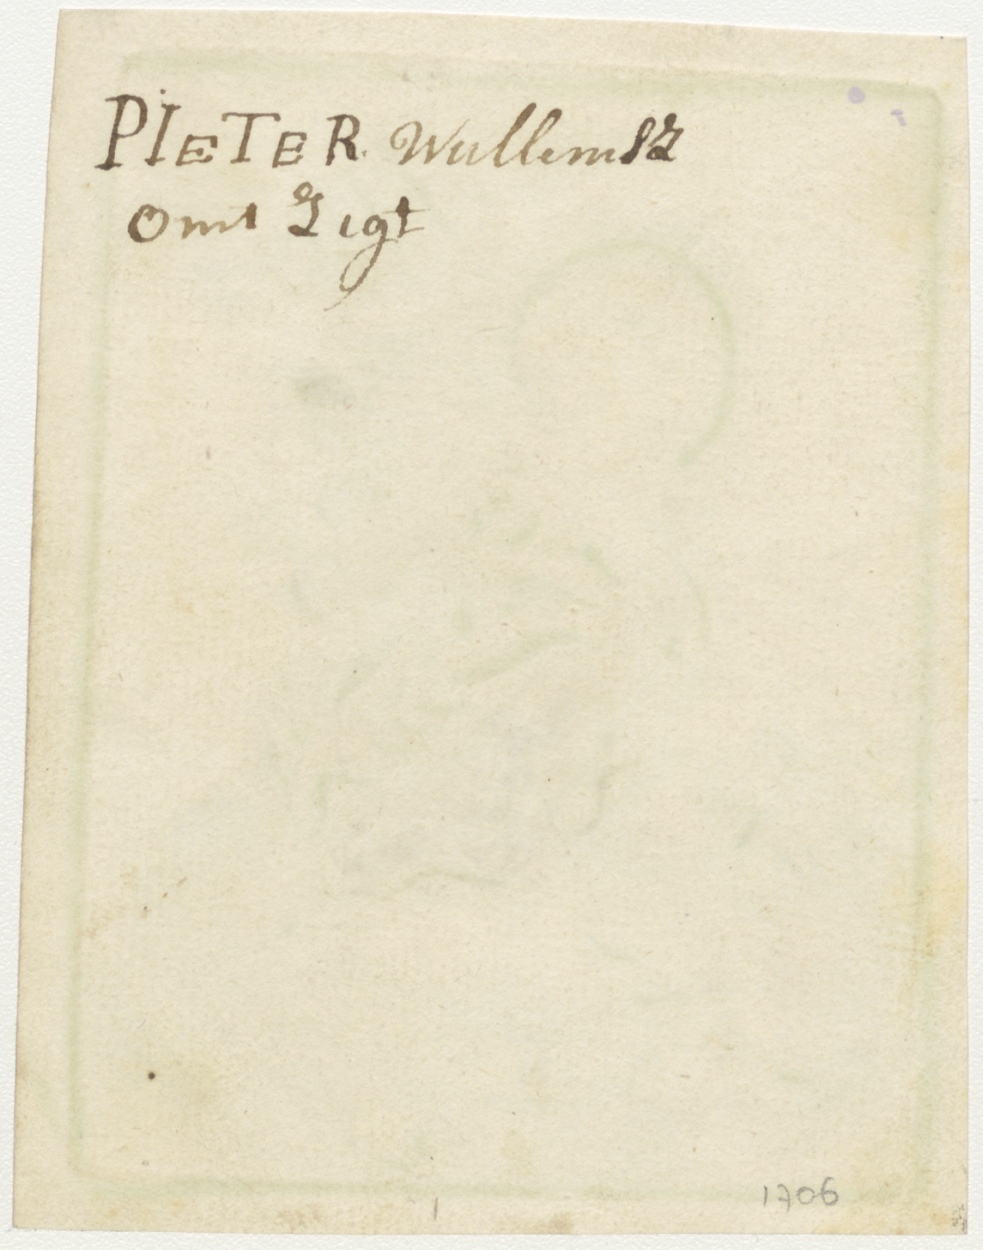 PIETER Wullemsz
omt Ligt
1706